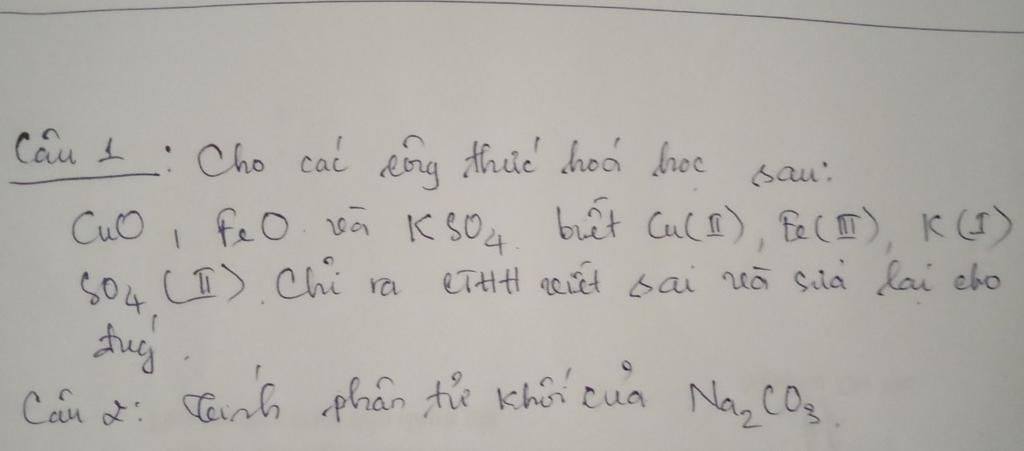 Câu 1 : Cho các công thức hoá học sau:
CuO, FeO và KSO4 biết Cu(II), Fe(III), K(I)
SO4(II). Chỉ ra CTHH viết sai và sửa lại cho
đúg.
Câu 2: Tính phân tử khối của Na2CO3.